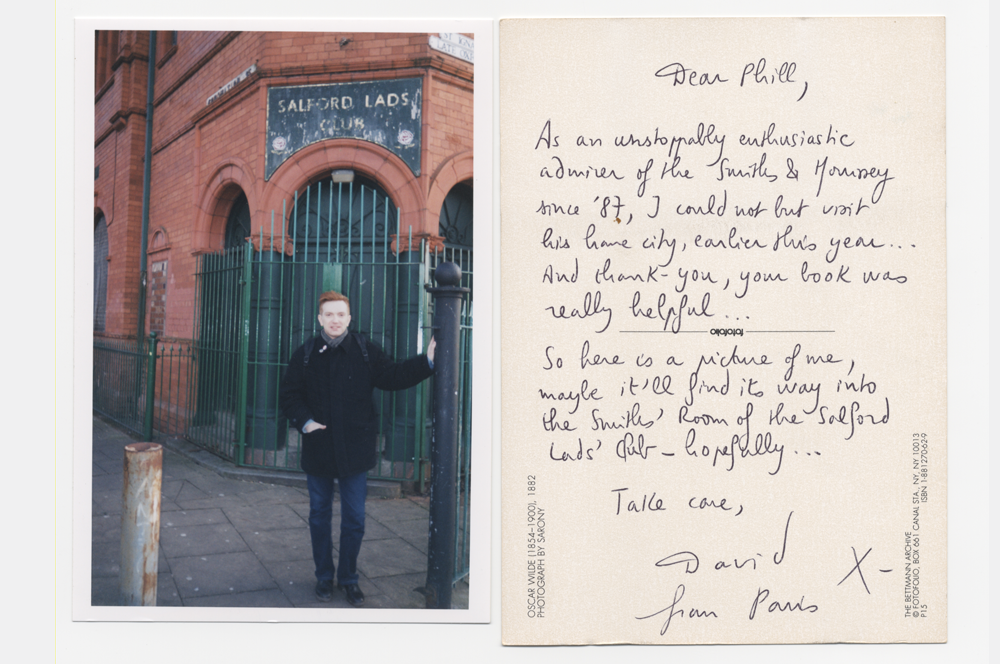 SALFORD LADS
CLUB
Dear Phill,
As an unstoppably enthusiastic
admirer of the Smiths & Morrissey
since '87, I could not but visit
his home city, earlier this year...
And thank-you, your book was
really helpful...
fotofolio
So here is a picture of me,
maybe it'll find its way into
the Smiths' Room of the Salford
Lads' Club - hopefully...
Take care,
David X-
from Paris
OSCAR WILDE (1854–1900), 1882
PHOTOGRAPH BY SARONY
THE BETTMANN ARCHIVE
© FOTOFOLIO, BOX 661 CANAL STA., NY, NY 10013
P15 ISBN 1-881270-62-9